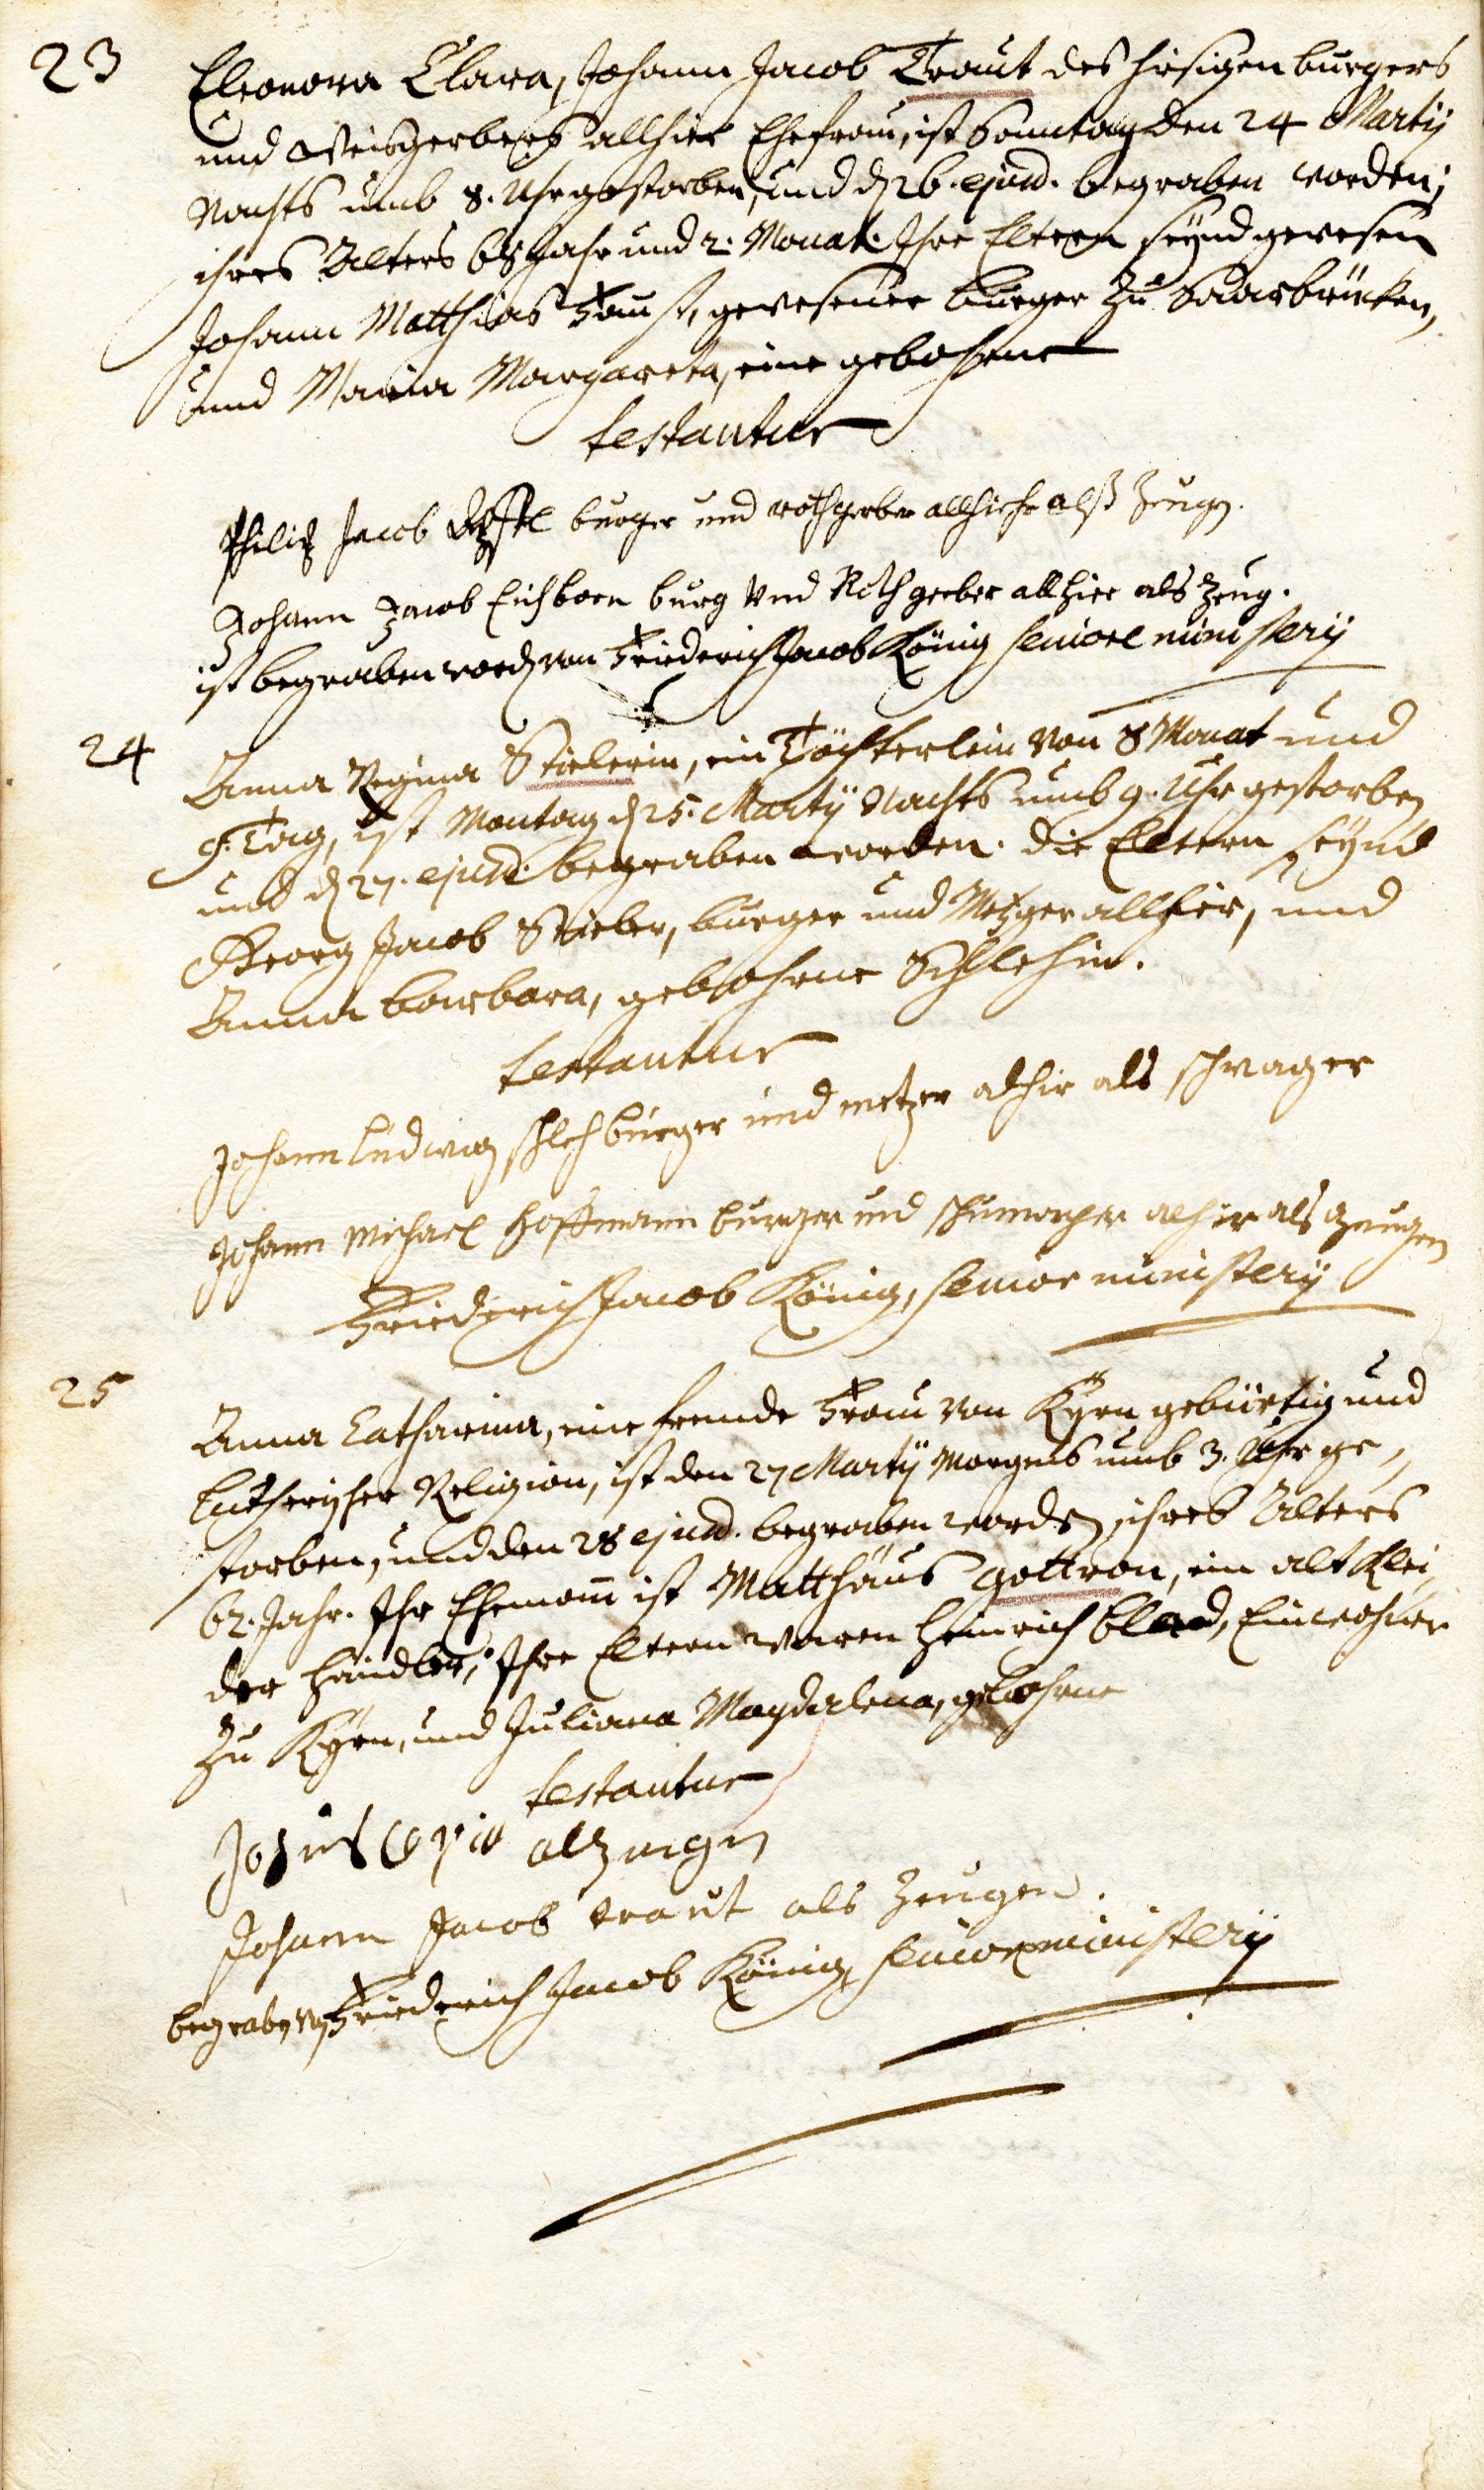 23
Eleonora Clara, Johann Jacob Traut des hiesigen burgers
und Weisgerbers allhier Ehefrau, ist Sonntag den 24 Martij
Nachts umb 8. Uhr gestorben, und d 26. ejusd. begraben worden;
ihres Alters 68 Jahr und 2. Monat. Ihre Eltern seynd gewesen
Johann Matthias Faust, gewesener burger zu Saarbrücken,
und Maria Margareta, eine gebohrne
testantur
Philip Jacob burger und rothgerber allhiehr alß Zeug.
Johann Jacob Eichborn burg Vnd Rothgerber allhier als Zeug.
ist begraben word von Friederich Jacob König seniore ministerij
24
Anna Regina Stielerin, ein Töchterlein von 8 Monat und
9. Tag, ist Montag d 25. Martij Nachts umb 9. Uhr gestorben
und d 27. ejusd. begraben worden. Die Eltern seynd
Georg Jacob Stieler, burger und Metzger allhier, und
Anna barbara, gebohrne Schlehin.
testantur
Johann Ludwig schleh burger und metzer alhir als schwager
Johann Michael Hoffmann burger und schumacher alhir als zeugen
Friederich Jacob König, senior ministerij
25
Anna Catharina, eine fremde Frau von Kÿrn gebürtig und
Lutherischer Religion, ist den 27 Martij Morgens umb 3. Uhr ge-
storben, und den 28 ejusd. begraben worden, ihres Alters
62. Jahr. Ihr Ehemann ist Matthäus gottron, ein alt Klei,
der händler; Ihre Eltern waren Heinrich, Einwohner
zu Kÿrn, und Juliana Magdalena, gebohrne
testantur
als zeugen
Johann Jacob traut als Zeugen.
begraben von Friederich Jacob König, senior ministerij